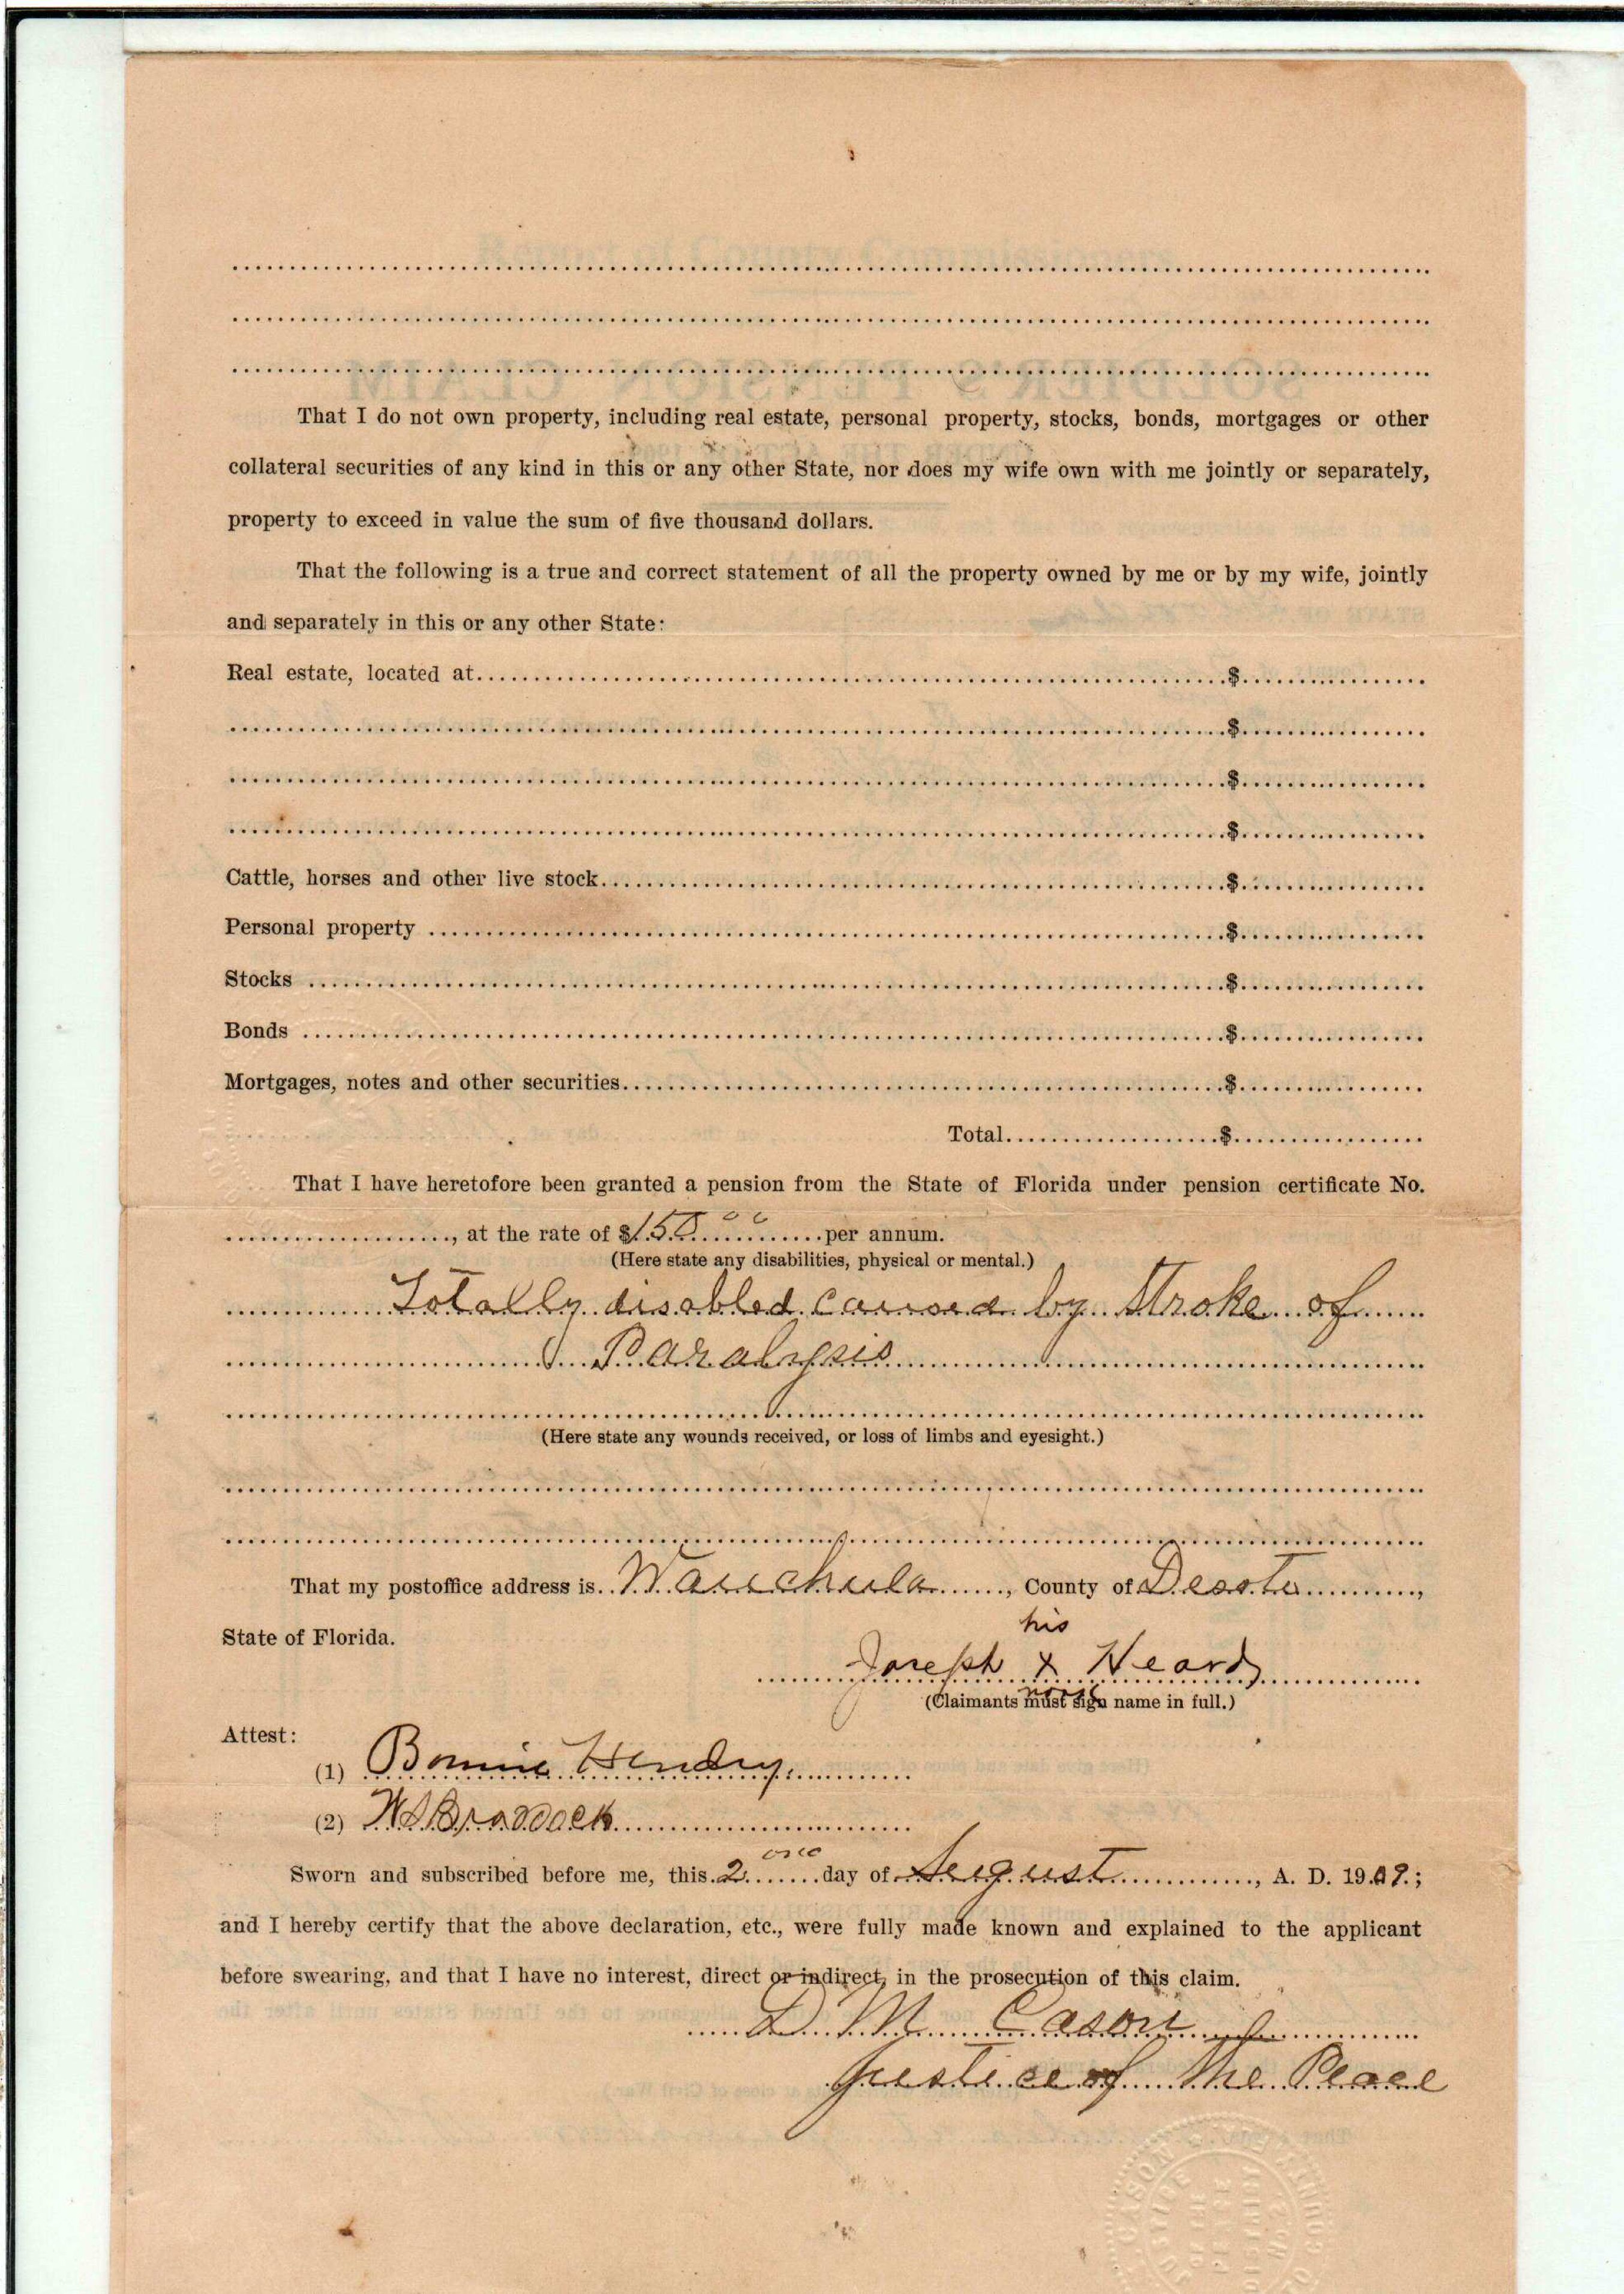 That I do not own property, including real estate, personal property, stocks, bonds, mortgages or other
collateral securities of any kind in this or any other State, nor does my wife own with me jointly or separately,
property to exceed in value the sum of five thousand dollars.
That the following is a true and correct statement of all the property owned by me or by my wife, jointly
and separately in this or any other State:
Real estate, located at $
$
$
$
Cattle, horses and other live stock $
Personal property $
Stocks $
Bonds $
Mortgages, notes and other securities $
Total $
That I have heretofore been granted a pension from the State of Florida under pension certificate No.
, at the rate of $150.00 per annum.
(Here state any disabilities, physical or mental.)
Totally disabled caused by Stroke of
Paralysis
(Here state any wounds received, or loss of limbs and eyesight.)
That my postoffice address is Wauchula, County of Desoto,
State of Florida.
his
Joseph X Heard
mark
(Claimants must sign name in full.)
Attest:
(1) Bonnie Hendry.
(2) W S Braddock
Sworn and subscribed before me, this 2 day of August, A. D. 1909;
and I hereby certify that the above declaration, etc., were fully made known and explained to the applicant
before swearing, and that I have no interest, direct or indirect, in the prosecution of this claim.
D. M. Cason
Justice of the Peace